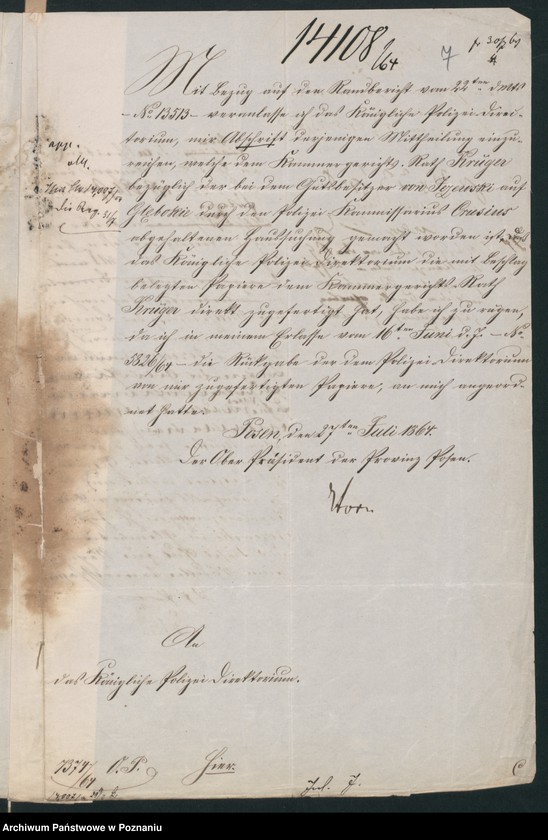 14108/64
7
pr 30/7 64
Mit Bezug auf den Randbericht vom 22ten d. Mts
- No 13513 - veranlasse ich das Königliche Polizei Direc-
torium, mir Abschrift derjenigen Mittheilung einzu-
reichen, welche dem Kammergerichts-Rath Krüger
bezüglich der bei dem Gutsbesitzer von auf
Głębokie durch den Polizei Kommissarius Crusius
abgehaltenen Haussuchung gemacht worden ist. Daß
das Königliche Polizei Direktorium die mit Beschlag
belegten Papiere dem Kammergerichts-Rath
Krüger direkt zugefertigt hat, habe ich zu rügen,
da ich in meinem Erlasse vom 16ten Juni d. J. - No
5826/64 - die Rückgabe der dem Polizei Direktorium
von mir zugefertigten Papiere, an mich angeord-
net hatte.
Posen, den 27ten Juli 1864.
Der Ober Präsident der Provinz Posen.
Horn
An
das Königliche Polizei Direktorium.
7374/64 O. P.
Hier.
Archiwum Państwowe w Poznaniu